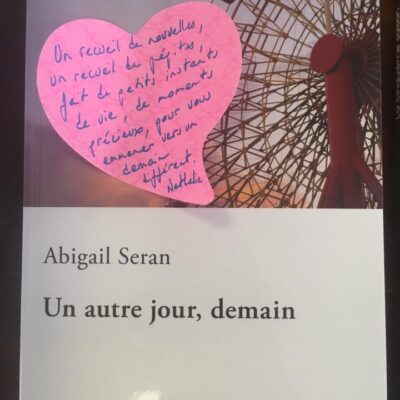 Un recueil de nouvelles,
un recueil de pépites,
fait de petits instants
de vie, de moments
précieux, pour vous
emmener vers un
demain
différent.
Nathalie
Abigail Seran
Un autre jour, demain